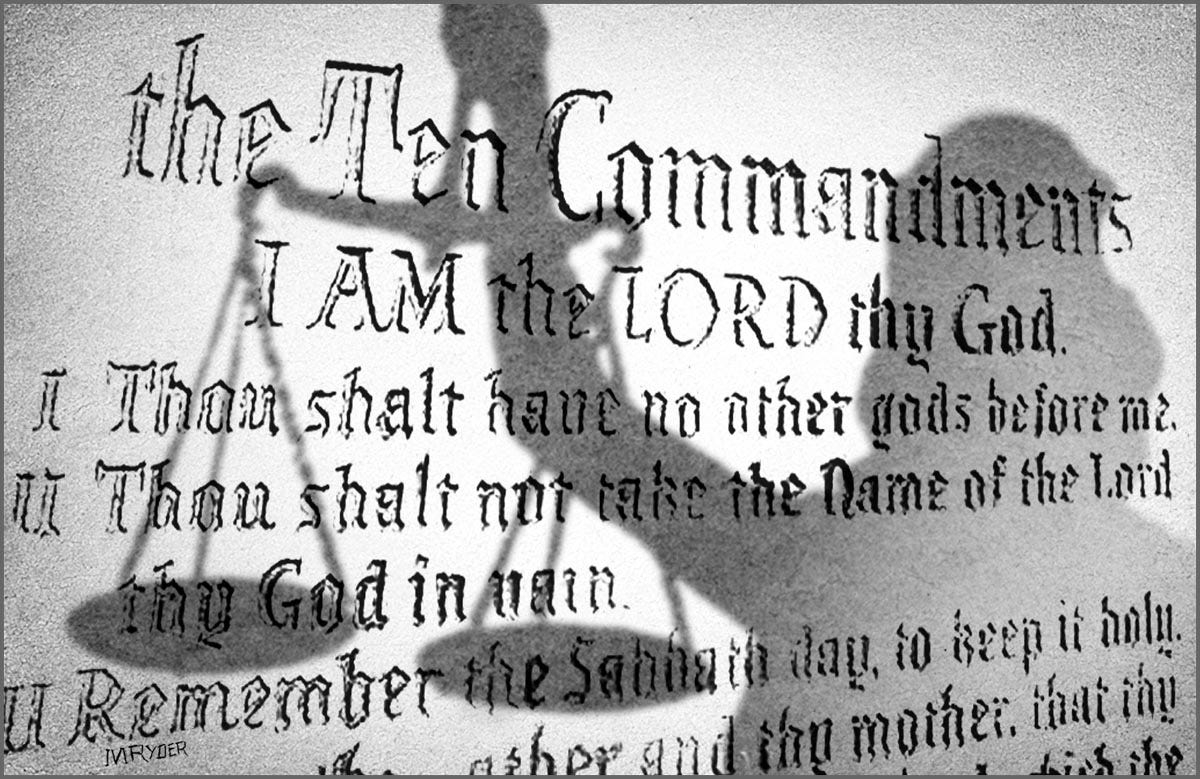 the Ten Commandments
I AM the LORD thy God.
I Thou shalt have no other gods before me.
II Thou shalt not take the Name of the Lord
thy God in vain.
Remember the Sabbath day, to keep it holy.
and thy mother, that thy
the
MRYDER